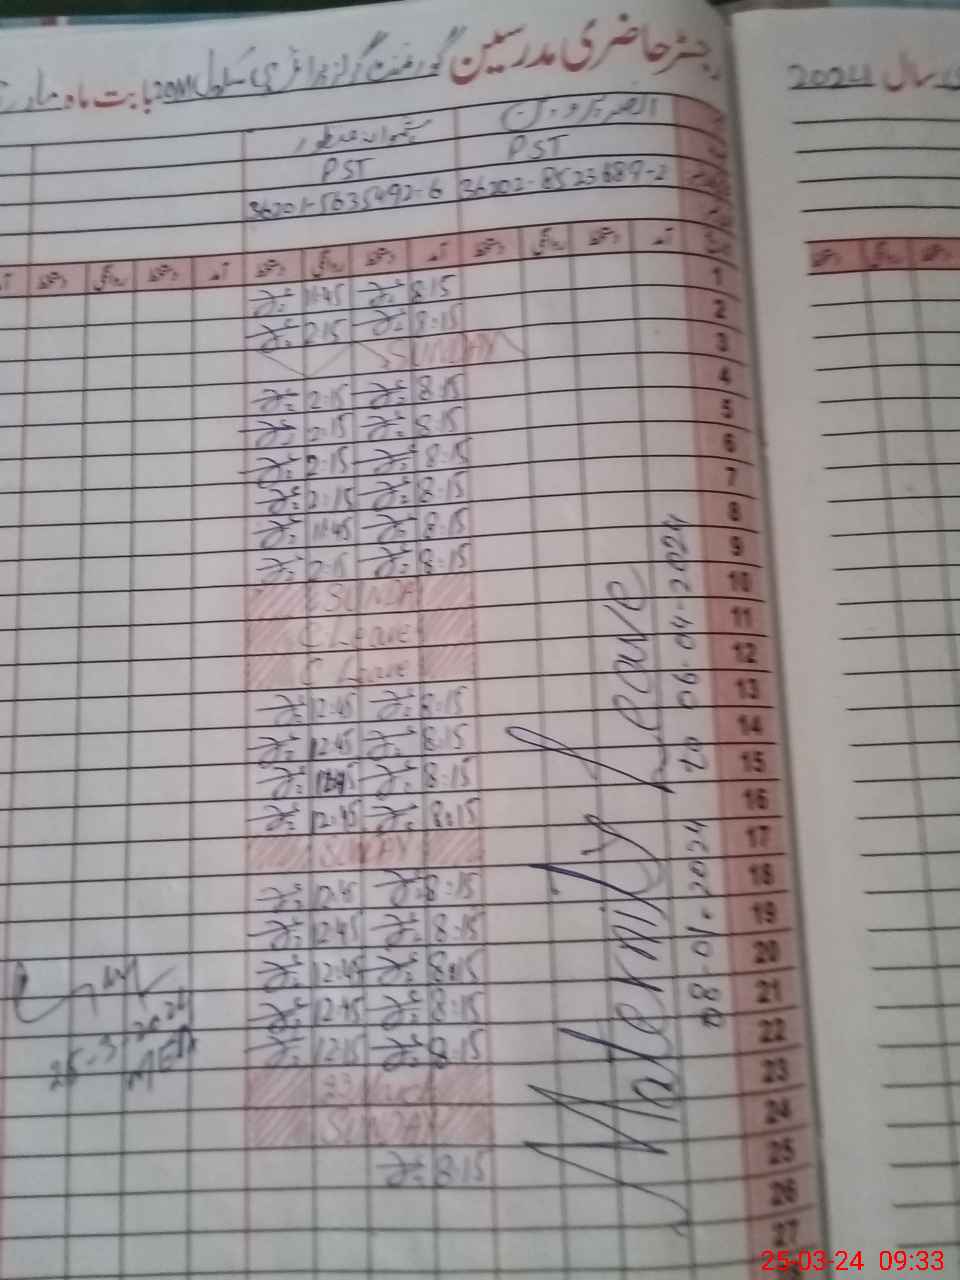 رجسٹر حاضری مدرسین گورنمنٹ گرلز پرائمری سکول 20M بابت ماہ مارچ
سال 2024
PST PST
36202-8523689-2 36201-5635492-6
آمد دستخط روانگی دستخط آمد دستخط روانگی دستخط آمد دستخط روانگی دستخط
1 8:15 11:45
2 8:15 2:15
3 SUNDAY
4 8:15 2:15
5 8:15 2:15
6 8:15 2:15
7 8:15 2:15
8 8:15 11:45
9 8:15 2:15
10 SUNDAY
11 C Leave
12 C Leave
13 8:15 12:45
14 8:15 12:45
15 8:15
16 8:15 12:45
17 SUNDAY
18 8:15 12:45
19 8:15 12:45
20 8:15 12:45
21 8:15 12:45
22 8:15 12:15
23
24 SUNDAY
25 8:15
26
27
Maternity Leave
08-01-2024 to 06-04-2024
25-3-2024
MEA
25-03-24 09:33